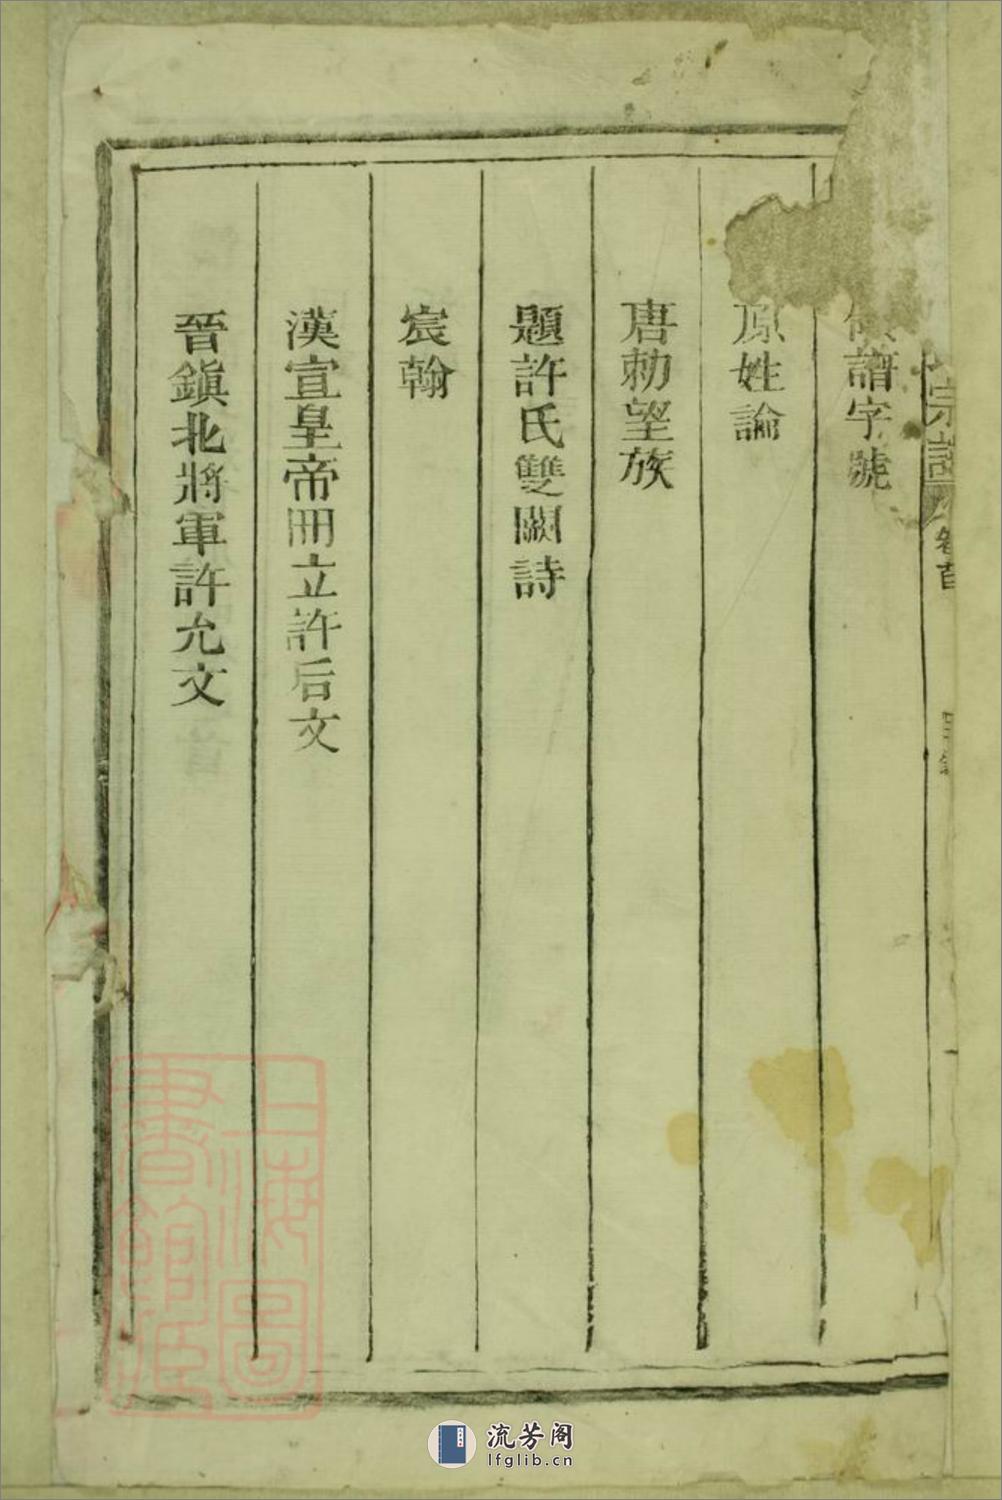 宗譜
卷首
目錄
譜字號
原姓論
唐勅望族
題許氏雙闕詩
宸翰
漢宣皇帝冊立許后文
晉鎮北將軍許允文
上海圖
書館藏
流芳阁
lfglib.cn